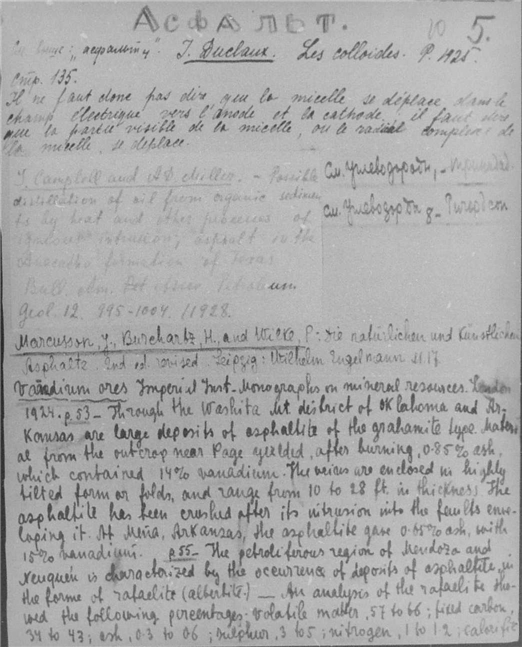 АСФАЛЬТ.
5.
См. выше: "асфальты". J. Duclaux. Les colloides. P. 1925.
стр. 135.
Il ne faut donc pas dire que la micelle se déplace dans le
champ électrique vers l'anode et la cathode: il faut dire
que la partie visible de la micelle, ou le radical complexe de
la micelle, se déplace.
См. Углеводороды,
См. Углеводороды
J. Campbell and Miller. - Possible
distillation of oil from organic sedimen
ts by heat and other processes of
intrusion; asphalt in the
Anacacho formation of Texas
Bull. Am. Petroleum
Geol. 12. 995-1004. 1928.
Marcusson, J., Burchartz, H., and Wilke, P: Die natürlichen und Künstlichen
Asphalte. 2nd ed. revised. Leipzig: Wilhelm Engelmann
Vanadium ores Imperial Inst. Monographs on mineral resources. London
1924. p53 - Through the Washita Mt. district of Oklahoma and Ar-
Kansas are large deposits of asphaltite of the grahamite type. Materi
al from the outcrop near Page yielded, after burning, 0.85% ash,
which contained 14% vanadium. The veins are enclosed in highly
tilted form or folds, and range from 10 to 28 ft. in thickness. The
asphaltite has been crushed after its intrusion into the faults enve-
loping it. At Mena, Arkansas, the asphaltite gave 0.65% ash, with
15% vanadium. p55- The petroliferous region of Mendoza and
Neuquén is characterized by the ocurrence of deposits of asphaltite in
the forme of rafaelite (albertite) — An analysis of the rafaelite sho-
wed the following percentages: volatile matter, 57 to 66; fixed carbon,
34 to 43; ash, 0.3 to 0.6; sulphur, 3 to 5; nitrogen, 1 to 1.2; calorific